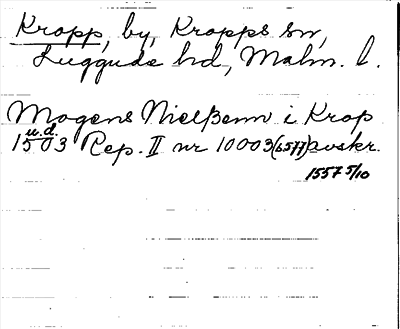 Kropp, by, Kropps sn,
Luggude hd, Malm. l.
Mogens Nielßenn i Krop
u.d.
1503 Rep. II nr 10003 (6577) avskr.
1557 5/10